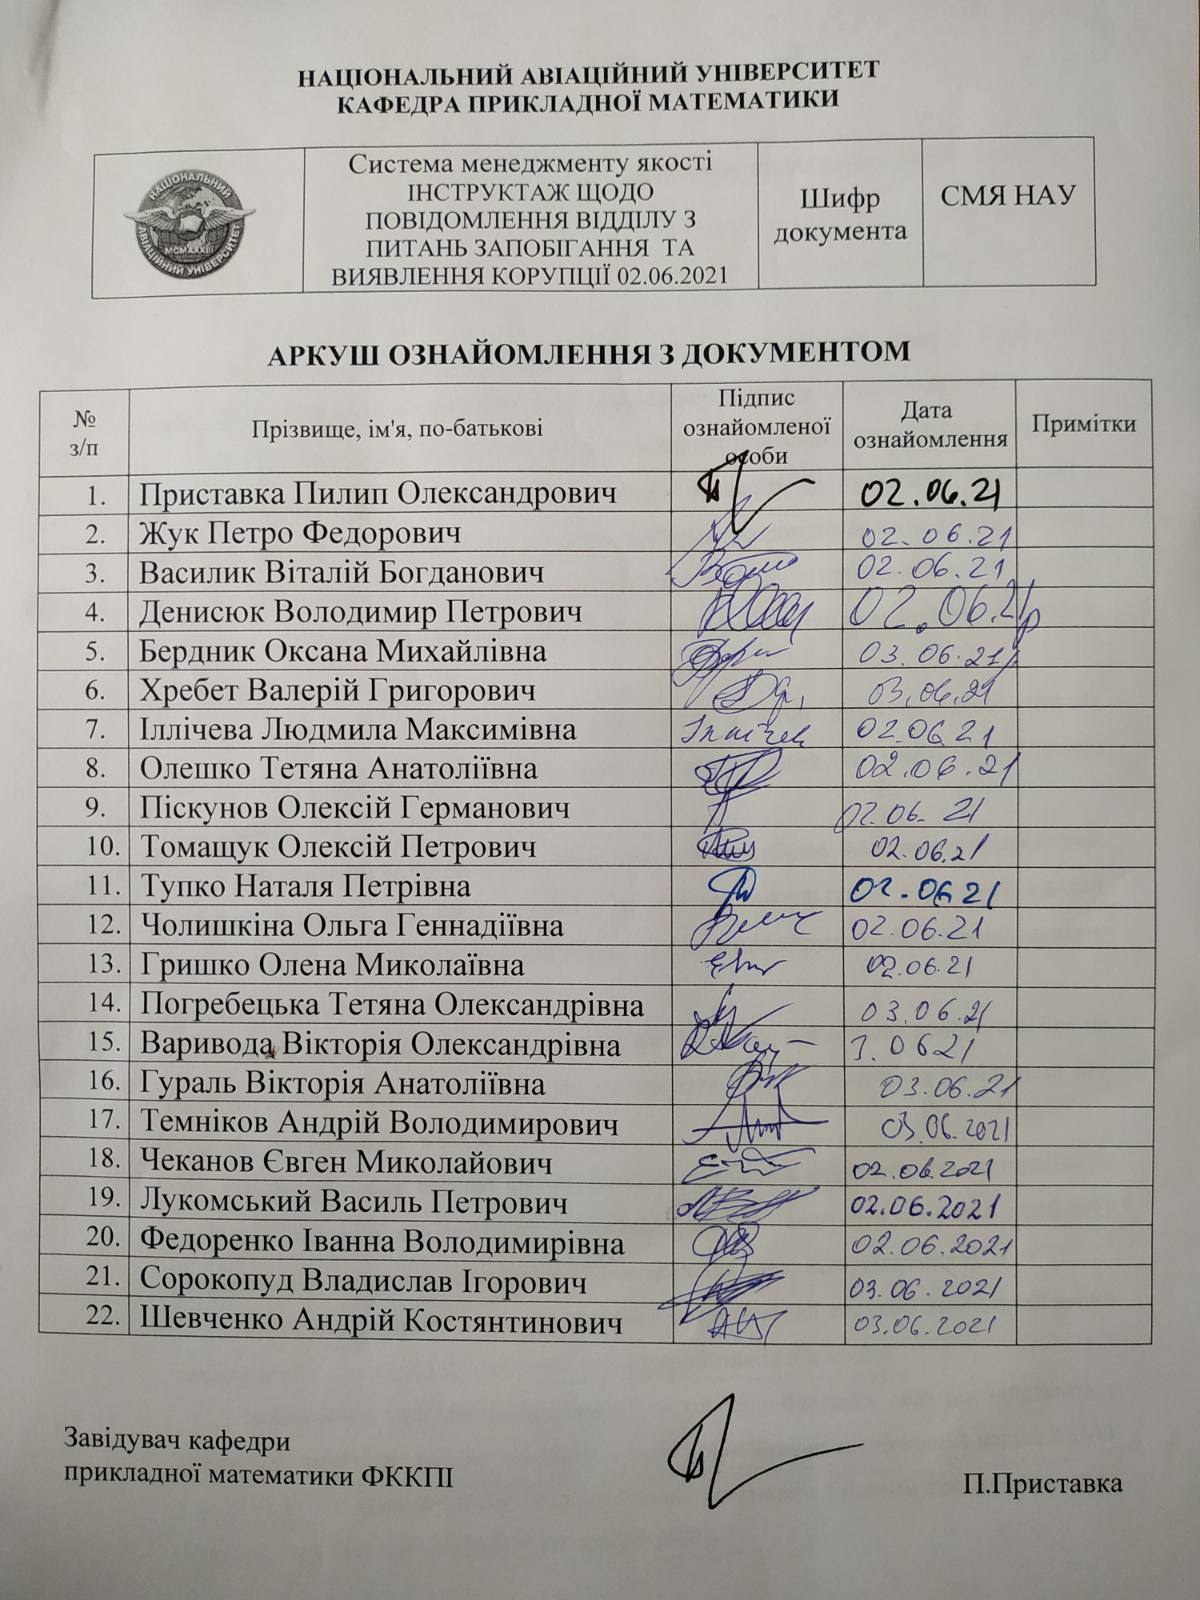 НАЦІОНАЛЬНИЙ АВІАЦІЙНИЙ УНІВЕРСИТЕТ
КАФЕДРА ПРИКЛАДНОЇ МАТЕМАТИКИ
НАЦІОНАЛЬНИЙ
MCMXXXIII
АВІАЦІЙНИЙ УНІВЕРСИТЕТ
Система менеджменту якості
ІНСТРУКТАЖ ЩОДО
ПОВІДОМЛЕННЯ ВІДДІЛУ З
ПИТАНЬ ЗАПОБІГАННЯ ТА
ВИЯВЛЕННЯ КОРУПЦІЇ 02.06.2021
Шифр
документа
СМЯ НАУ
АРКУШ ОЗНАЙОМЛЕННЯ З ДОКУМЕНТОМ
№
з/п
Прізвище, ім'я, по-батькові
Підпис
ознайомленої
особи
Дата
ознайомлення
Примітки
1. Приставка Пилип Олександрович 02.06.21
2. Жук Петро Федорович 02.06.21
3. Василик Віталій Богданович 02.06.21
4. Денисюк Володимир Петрович 02.06.21р
5. Бердник Оксана Михайлівна 03.06.21р
6. Хребет Валерій Григорович 03.06.21
7. Іллічева Людмила Максимівна 02.06.21
8. Олешко Тетяна Анатоліївна 02.06.21
9. Піскунов Олексій Германович 02.06.21
10. Томащук Олексій Петрович 02.06.21
11. Тупко Наталя Петрівна 02.06.21
12. Чолишкіна Ольга Геннадіївна 02.06.21
13. Гришко Олена Миколаївна 02.06.21
14. Погребецька Тетяна Олександрівна 03.06.21
15. Варивода Вікторія Олександрівна 3.0621
16. Гураль Вікторія Анатоліївна 03.06.21
17. Темніков Андрій Володимирович 03.06.2021
18. Чеканов Євген Миколайович 02.06.2021
19. Лукомський Василь Петрович 02.06.2021
20. Федоренко Іванна Володимирівна 02.06.2021
21. Сорокопуд Владислав Ігорович 03.06.2021
22. Шевченко Андрій Костянтинович 03.06.2021
Завідувач кафедри
прикладної математики ФККПІ
П.Приставка